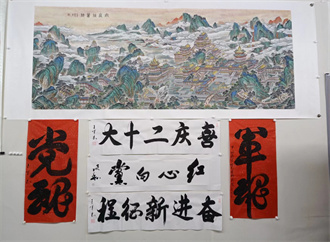 喜庆二十大
红心向黨
奋进新征程
党魂
军魂